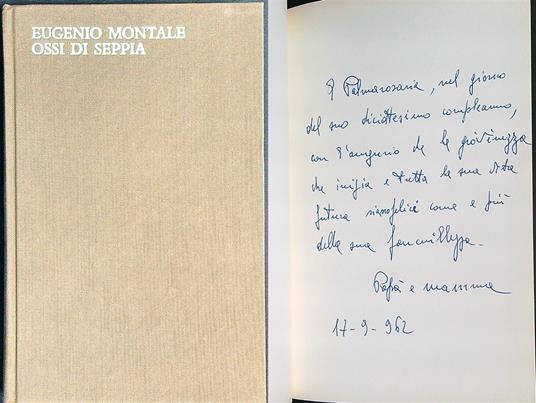 EUGENIO MONTALE
OSSI DI SEPPIA
A Palmarosaria, nel giorno
del suo diciottesimo compleanno,
con l'augurio che la giovinezza
che inizia e tutta la sua vita
futura siano felici come e più
della sua fanciullezza.
Papà e mamma
17-9-962